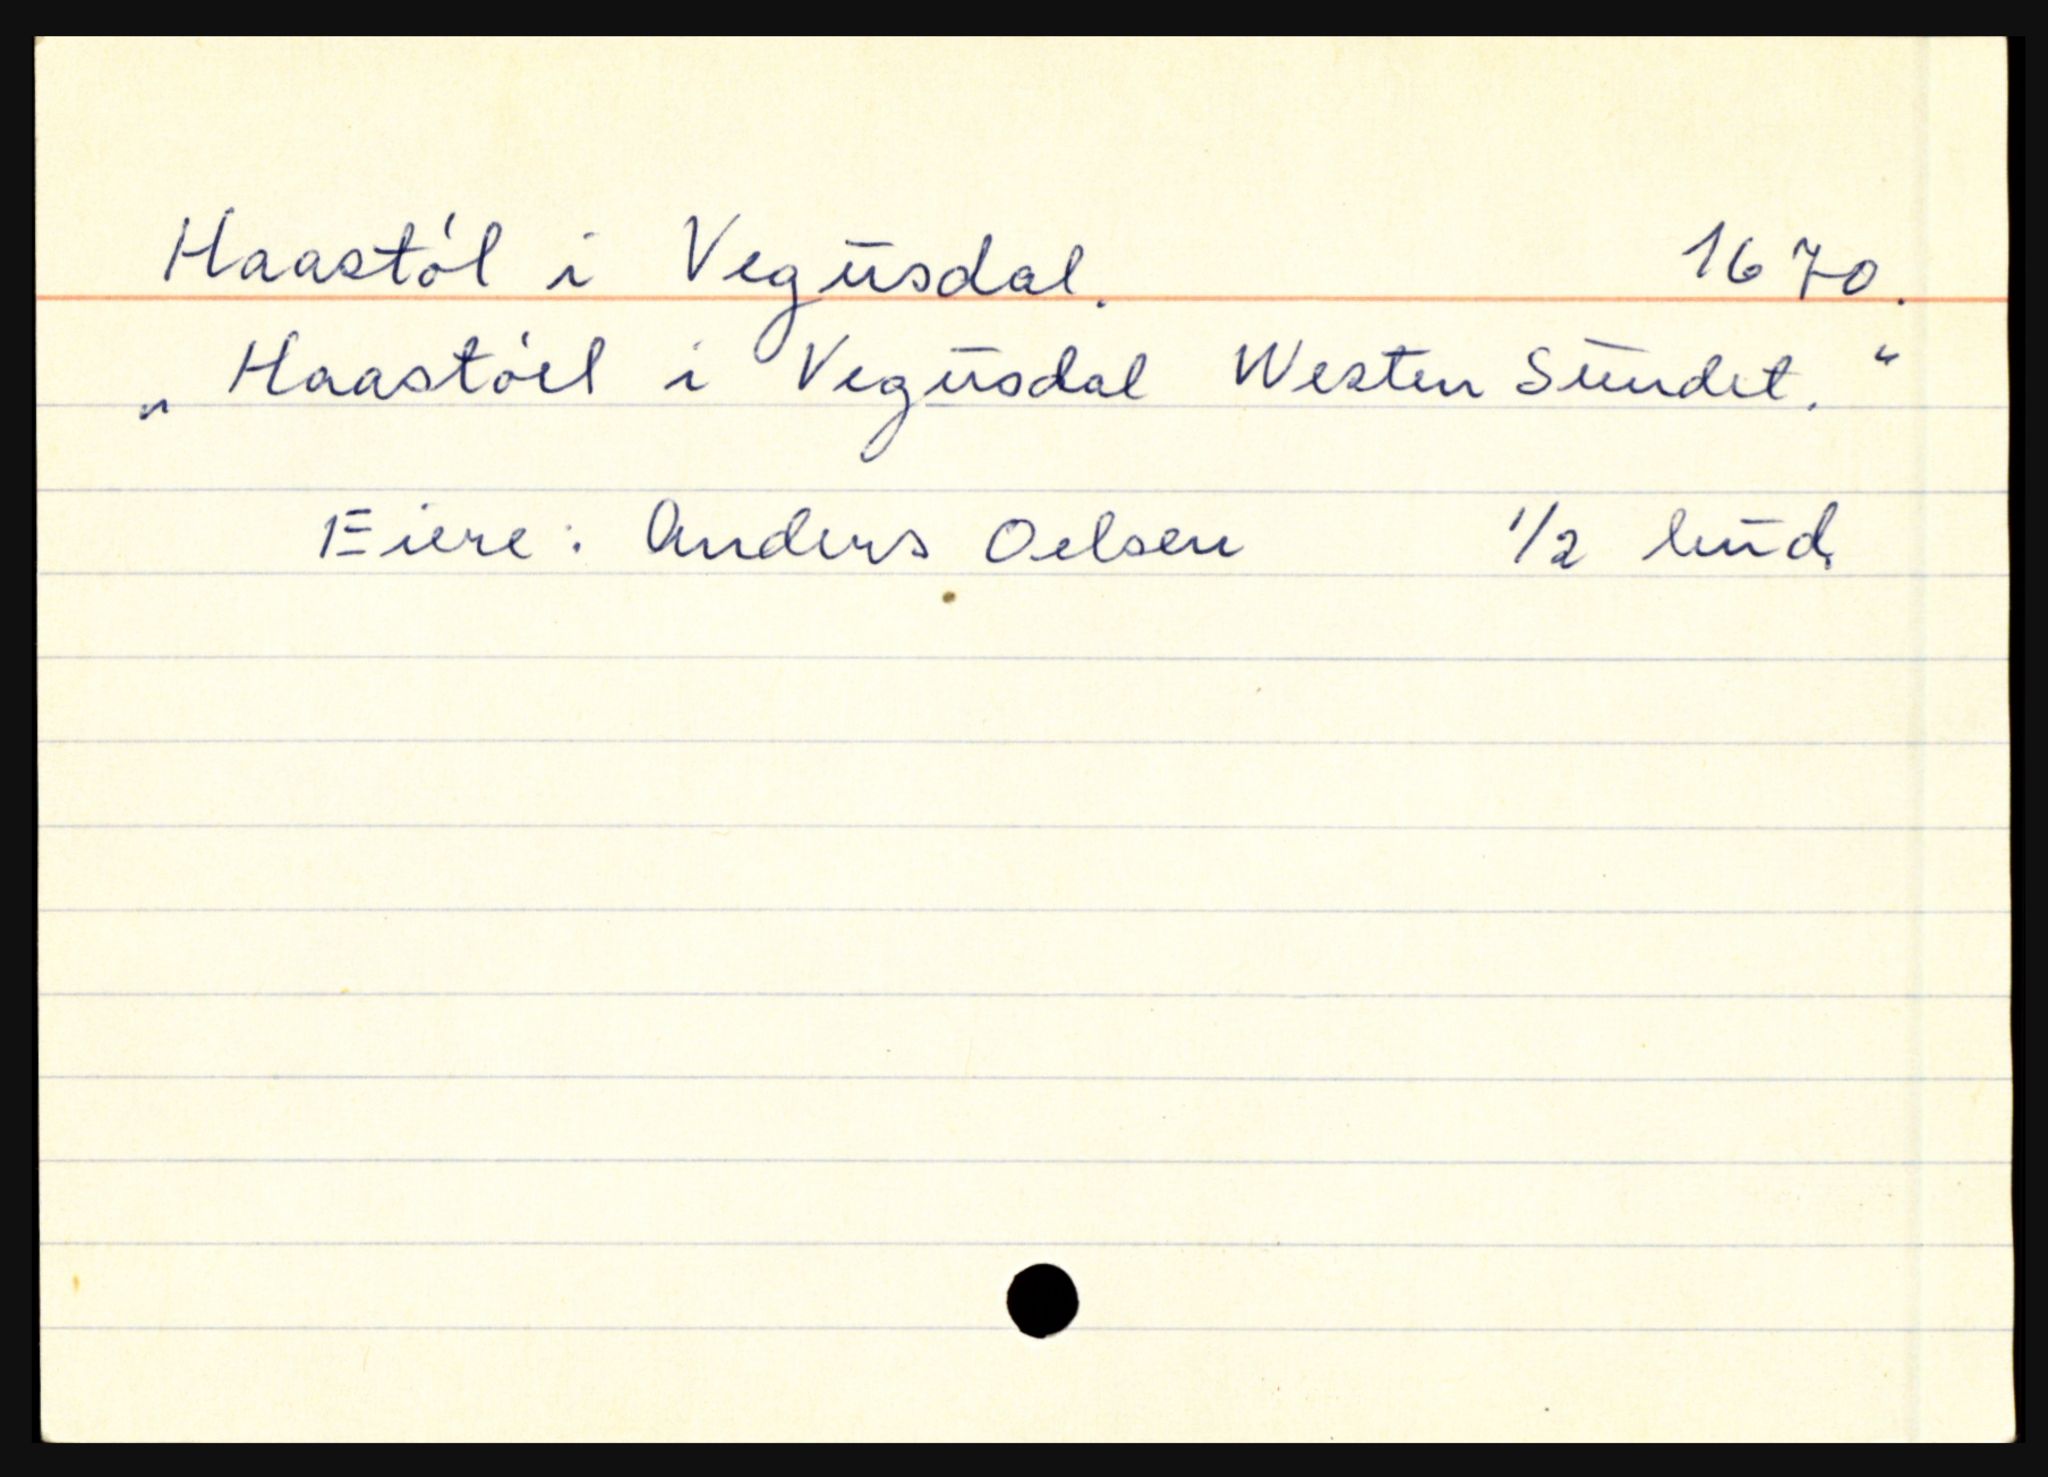 Haastól i Vegusdal. 1670.
„Haastóel i Vegusdal Westen Sundet.“
Eiere: Anders Oelsen 1/2 hud.